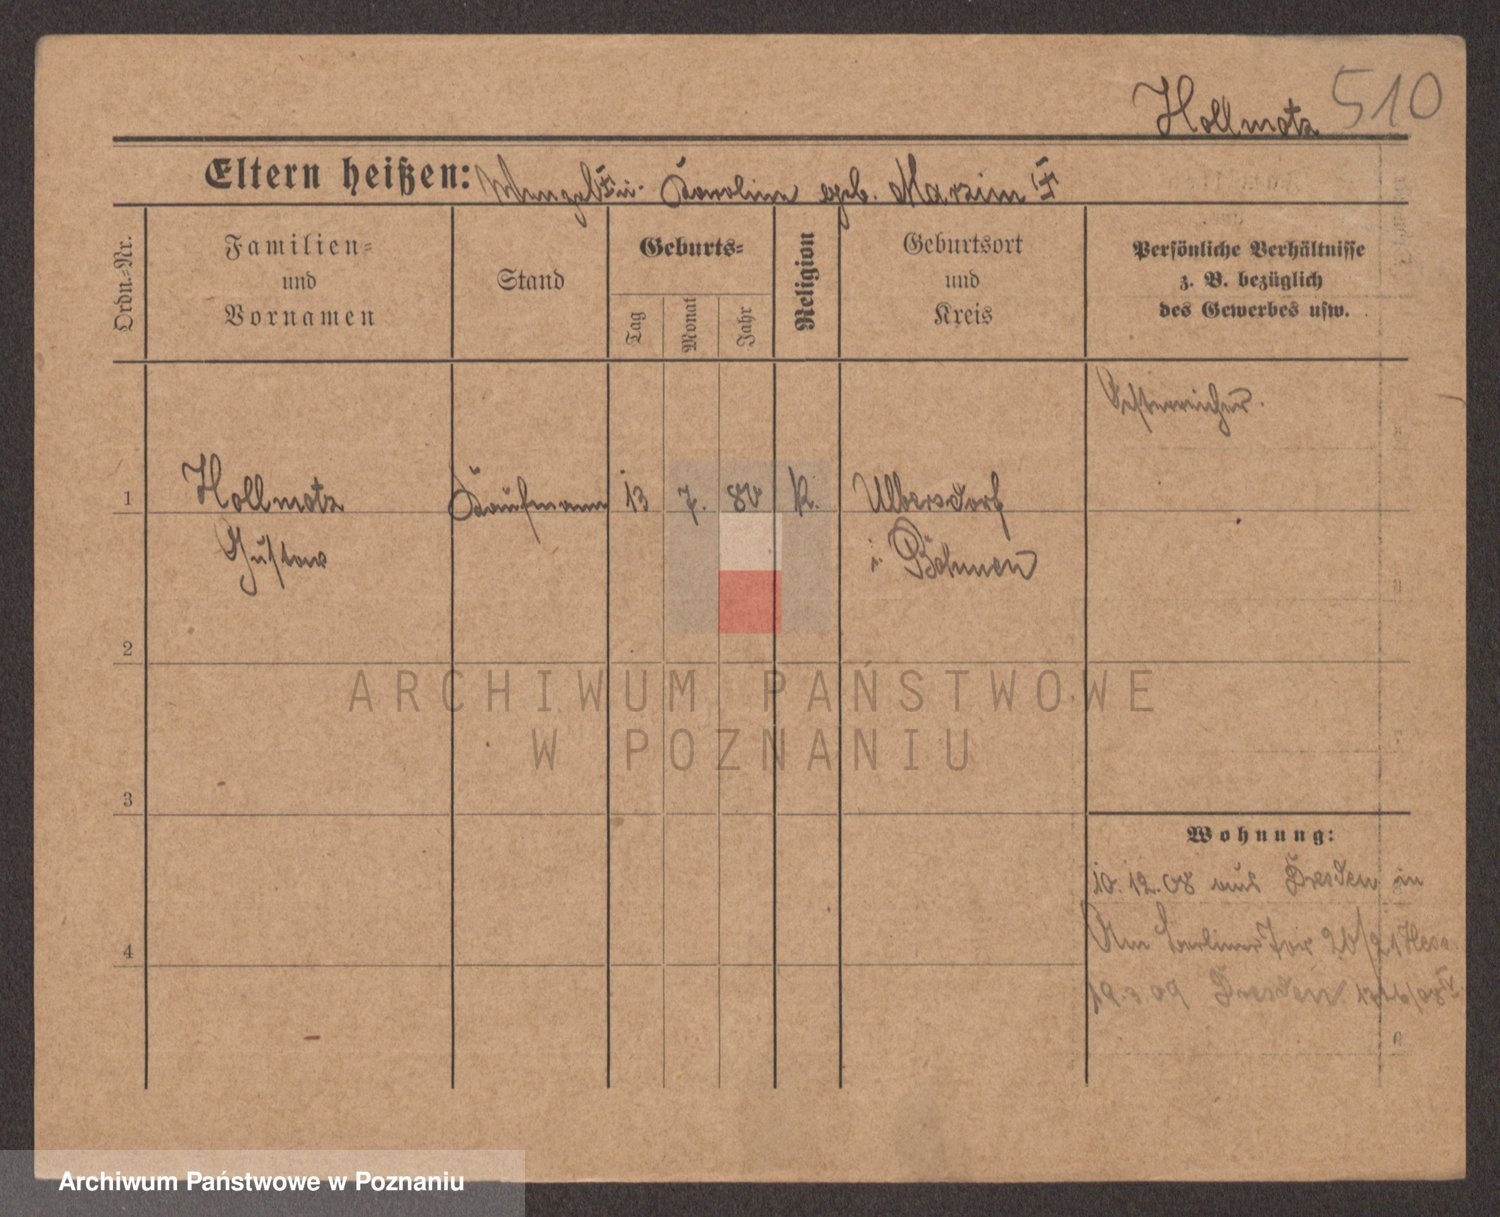 Hollmotz 510
Eltern heißen: Wenzel u. Karoline geb. Marzin
Ordn.-Nr.
Familien-
und
Vornamen
Stand
Geburts-
Tag
Monat
Jahr
Religion
Geburtsort
und
Kreis
Persönliche Verhältnisse
z. B. bezüglich
des Gewerbes usw.
Oesterreicher.
1 Hollmotz Kaufmann 13 7. 80 K. Ulbersdorf
Gustav i. Böhmen
2
ARCHIWUM PAŃSTWOWE
W POZNANIU
3
Wohnung:
10.12.08 aus Dresden in
Am Berliner Tor
4
19.3.09 Dresden
Archiwum Państwowe w Poznaniu